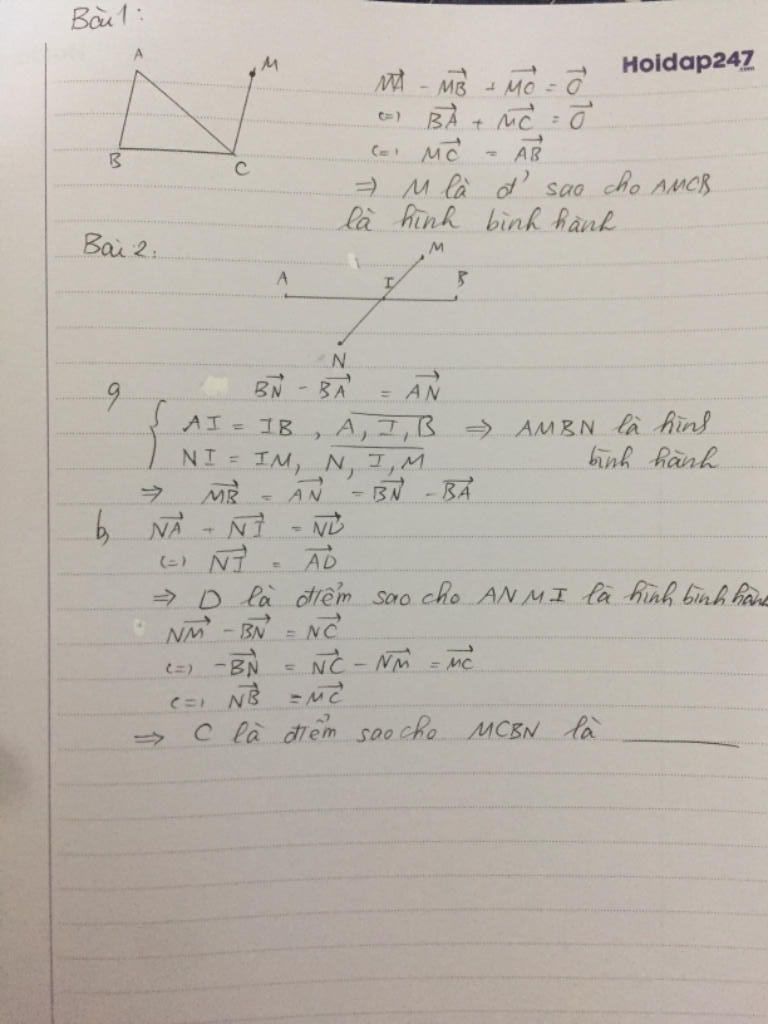 Bài 1:
Hoidap247
.com
A
M
B
C
MA - MB + MC = 0
(=) BA + MC = 0
(=) MC = AB
=> M là đ' sao cho AMCB
là hình bình hành
Bài 2:
A
I
M
B
N
a
BN - BA = AN
AI = IB, A, I, B => AMBN là hình
NI = IM, N, I, M bình hành
=> MB = AN = BN - BA
b, NA + NI = ND
(=) NI = AD
=> D là điểm sao cho ANMI là hình bình hành
NM - BN = NC
(=) -BN = NC - NM = MC
(=) NB = MC
=> C là điểm sao cho MCBN là